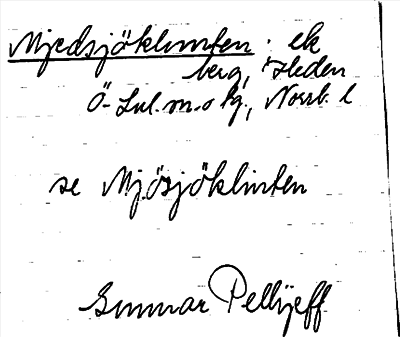 Mjedsjöklimten. ek
berg, Heden
Ö-Lul. m. o kg., Norrb. l
se Mjösjöklinten
Gunnar Pellijeff